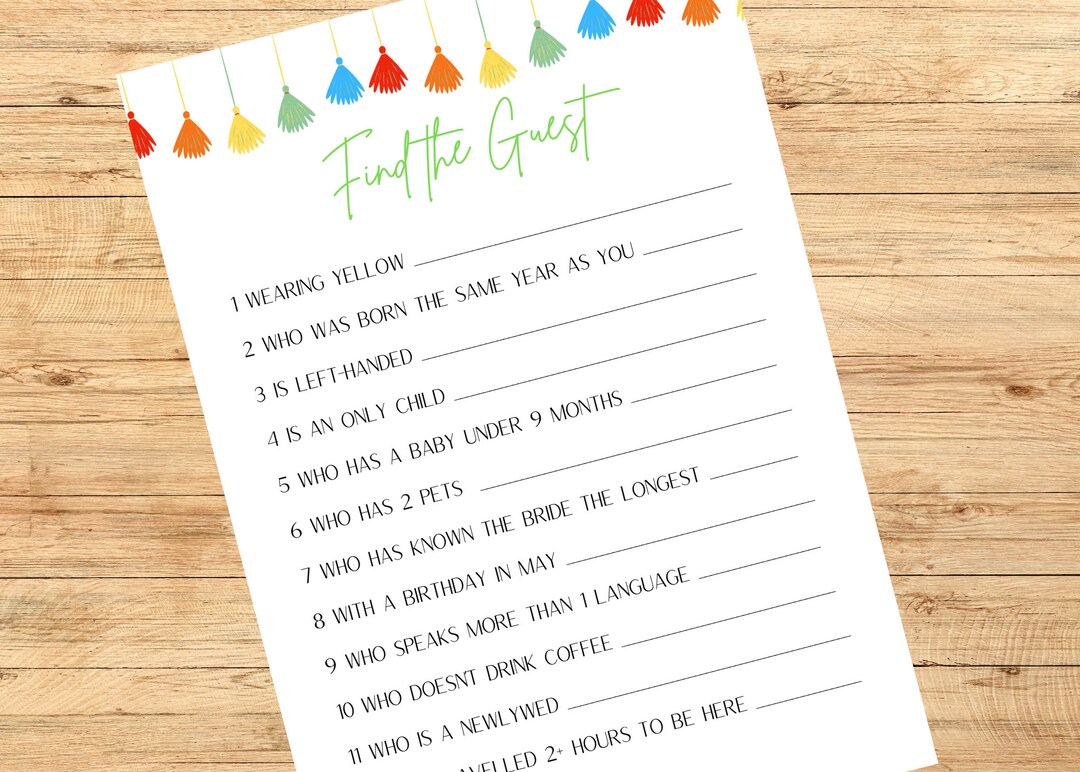 Find the Guest
1 WEARING YELLOW
2 WHO WAS BORN THE SAME YEAR AS YOU
3 IS LEFT-HANDED
4 IS AN ONLY CHILD
5 WHO HAS A BABY UNDER 9 MONTHS
6 WHO HAS 2 PETS
7 WHO HAS KNOWN THE BRIDE THE LONGEST
8 WITH A BIRTHDAY IN MAY
9 WHO SPEAKS MORE THAN 1 LANGUAGE
10 WHO DOESNT DRINK COFFEE
11 WHO IS A NEWLYWED
2+ HOURS TO BE HERE